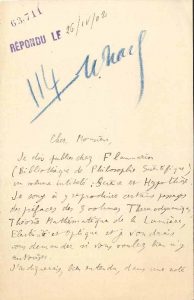 RÉPONDU LE 26/IV/02
114
Cher Monsieur,
Je dois publier chez Flammarion
(Bibliothèque de Philosophie Scientifique)
un volume intitulé: Science et Hypothèse.
Je songe à y reproduire certains passages
des préfaces des 3 volumes Thermodynamique,
Théorie Mathématique de la Lumière,
Electricité et Optique et je voudrais
vous demander si vous voulez bien m'y
autoriser.
J'indiquerais, bien entendu, dans une note